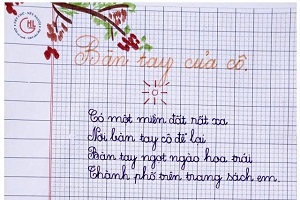 Bàn tay của cô.
Có một miền đất rất xa
Nơi bàn tay cô để lại
Bàn tay ngọt ngào hoa trái
Thành phố trên trang sách em.